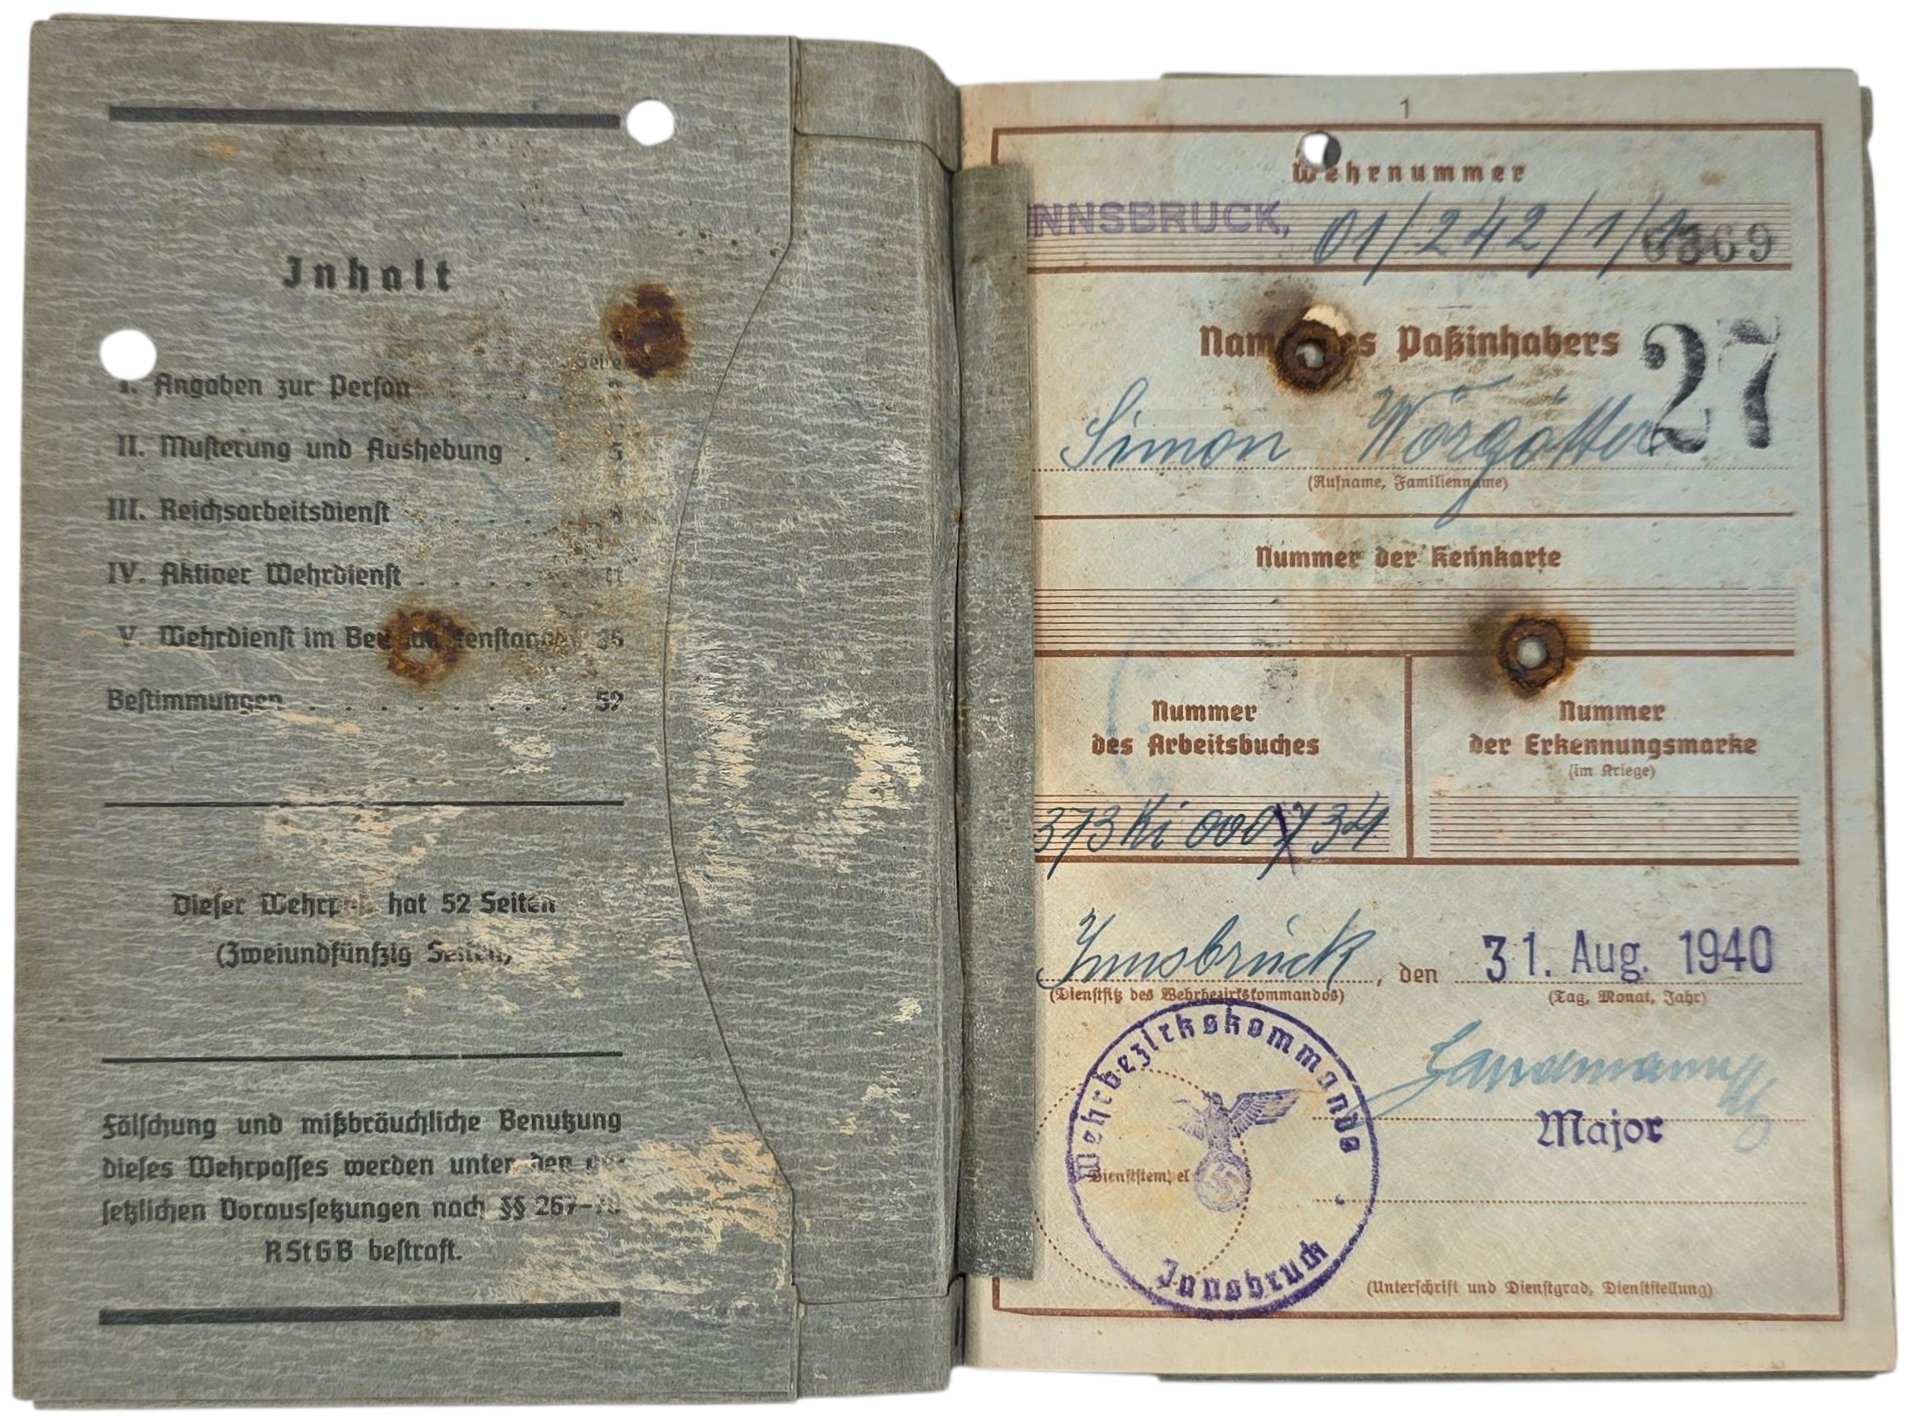 Inhalt
Seite
I. Angaben zur Person . . . . 3
II. Musterung und Aushebung . . 5
III. Reichsarbeitsdienst . . . . .
IV. Aktiver Wehrdienst . . . . 11
V. Wehrdienst im
Bestimmungen . . . . . . . . . 52
Dieser hat 52 Seiten
(Zweiundfünfzig Seiten)
Fälschung und mißbräuchliche Benutzung
dieses Wehrpasses werden unter den
setzlichen Voraussetzungen nach §§ 267–
RStGB bestraft.
1
Wehrnummer
INNSBRUCK, 01/242/1/
Name des Paßinhabers
27
Simon Wörgötter
(Rufname, Familienname)
Nummer der Kennkarte
Nummer
des Arbeitsbuches
Nummer
der Erkennungsmarke
(im Kriege)
373 Ki 000734
Innsbruck, den 31. Aug. 1940
(Dienstsitz des Wehrbezirkskommandos) (Tag, Monat, Jahr)
Wehrbezirkskommando
Innsbruck
Dienststempel
Major
(Unterschrift und Dienstgrad, Dienststellung)